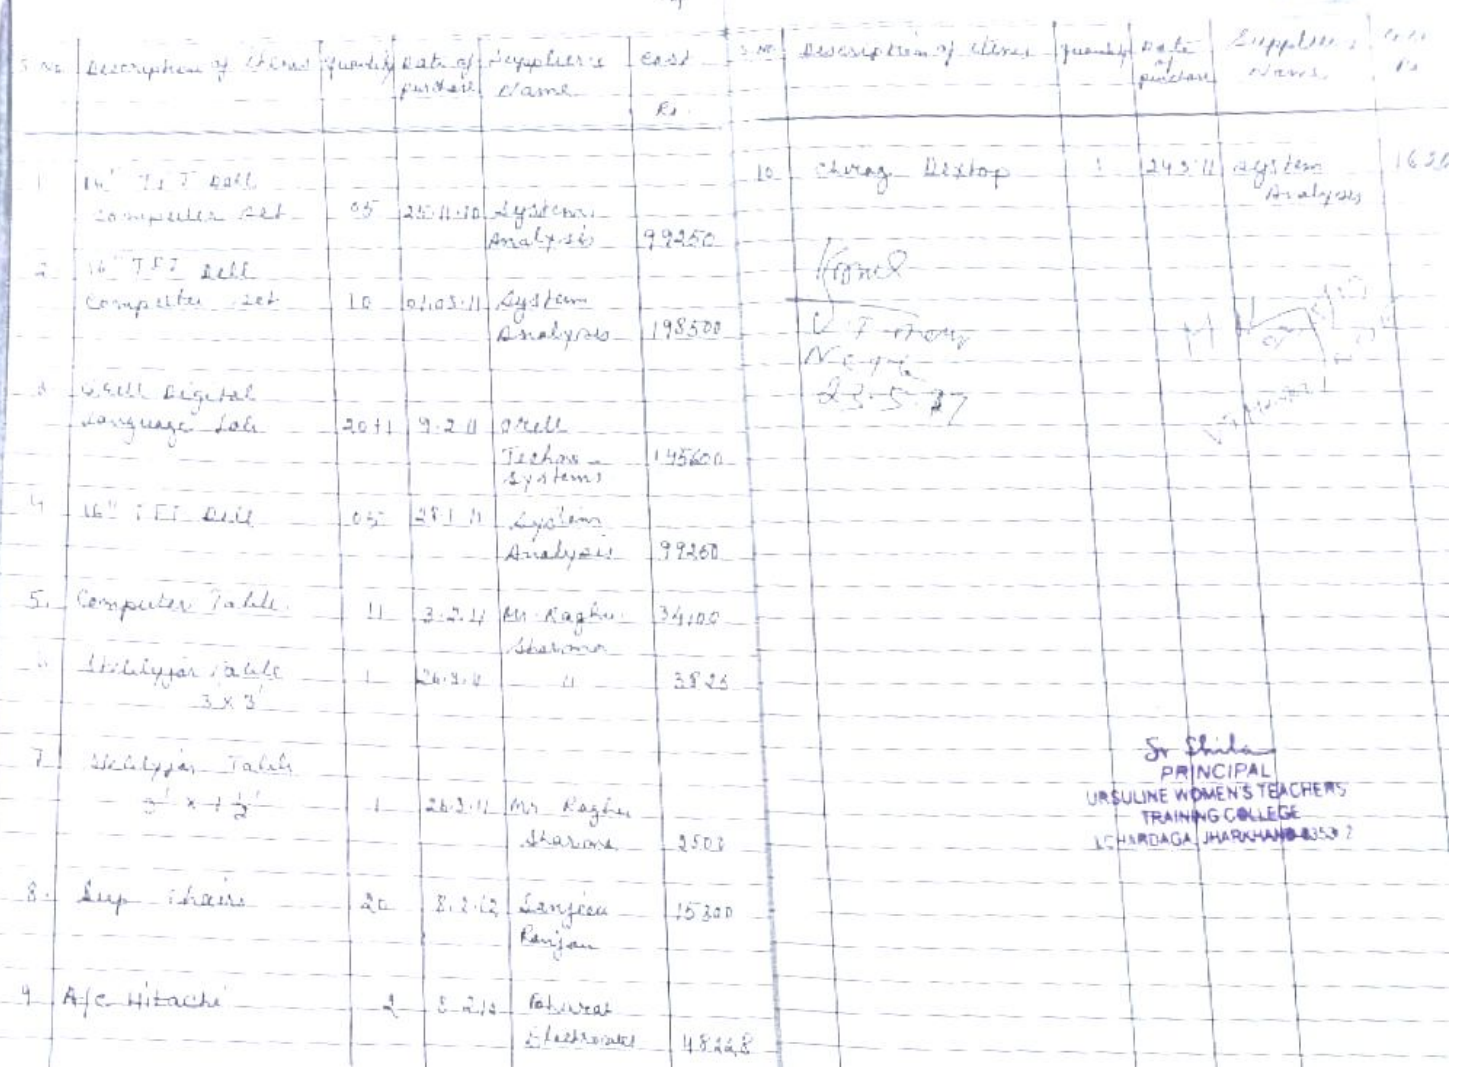 S.No Description of Items Quantity Date of purchase Supplier's Name Cost Rs.
1 16" TFT Dell
Computer Set 05 25.11.10 System
Analysis 99250
2 16" TFT Dell
Computer Set 10 01.03.11 System
Analysis 198500
3 Orell Digital
Language Lab 20+1 9.2.11 Orell
Techno
Systems 145600
4 16" TFT Dell 05 28.1.11 System
Analysis 99250
5. Computer Table 11 3.2.11 Mr. Raghu
Sharma 34100
6 Table 1 26.3.11 " 3825
3 x 3'
7 Table
3' x 1 1/2' 1 26.3.11 Mr Raghu
Sharma 2500
8. Chairs 20 8.2.12 Sanjeev
Ranjan 15300
9 A/C Hitachi 2
Electronics 48228
S.No Description of Items Quantity Date of purchase Supplier's Name Rs
10 Chirag Dextop 1 24.3.11 System
Analysis
23.5.
Sr Shila
PRINCIPAL
URSULINE WOMEN'S TEACHERS
TRAINING COLLEGE
LOHARDAGA, JHARKHAND